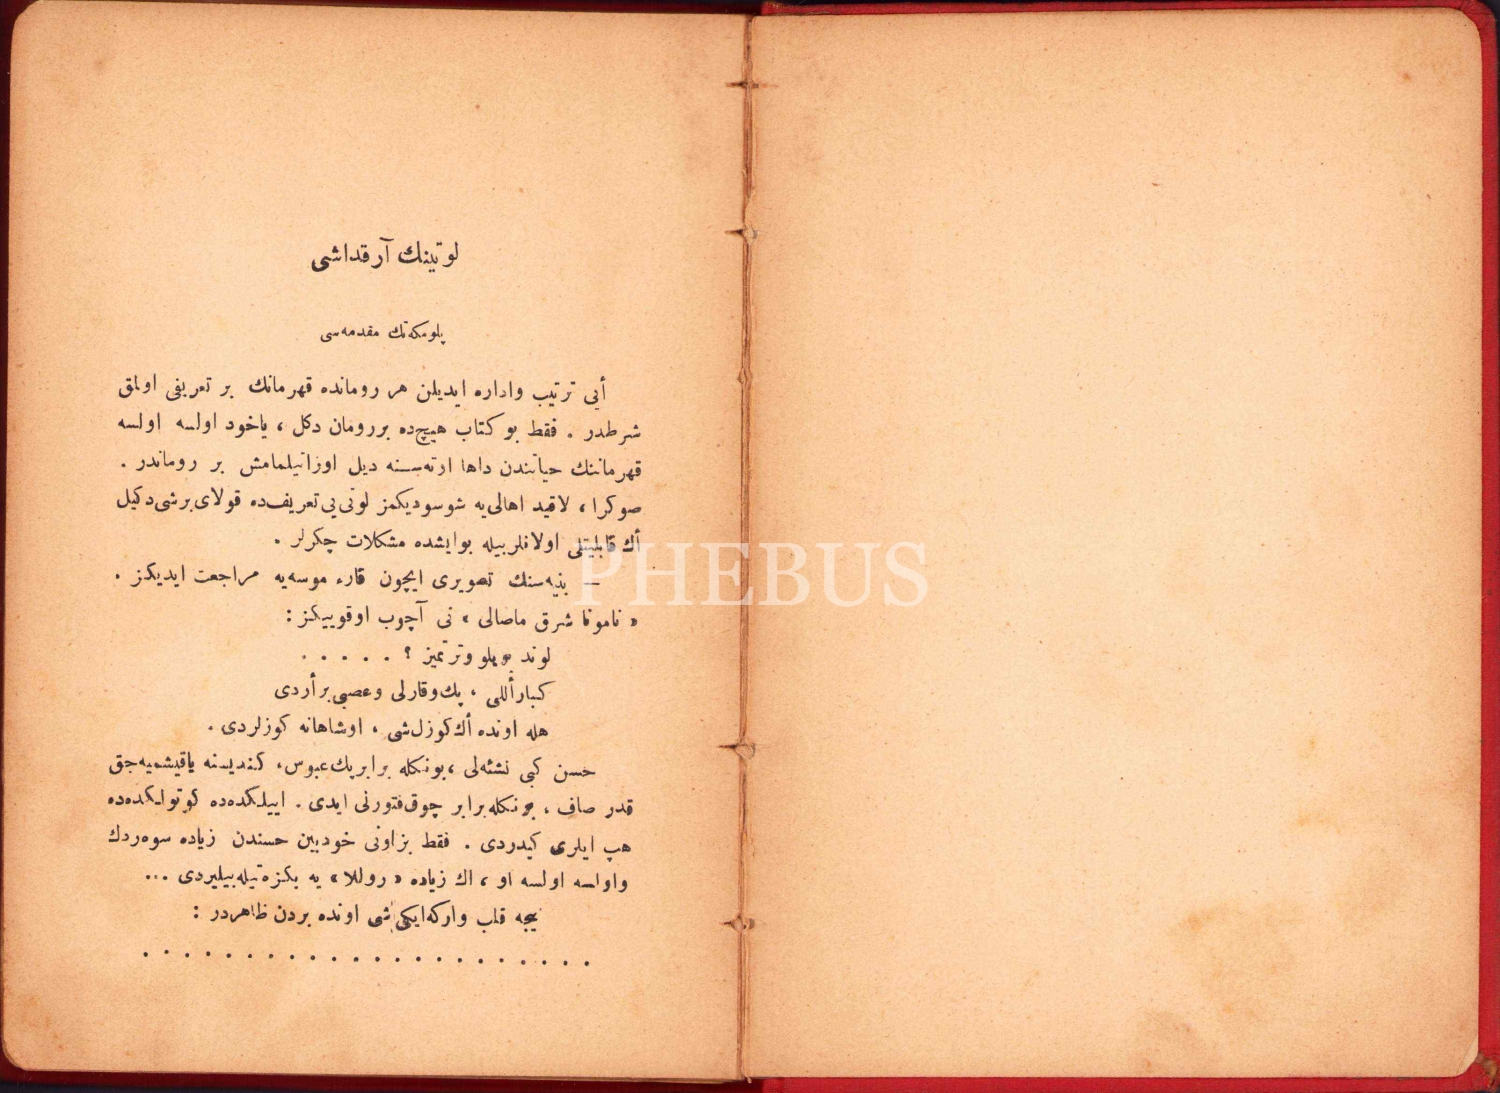 لوتينك آرقداشى
پلومكه‌تك مقدمه‌سى
أيى ترتيب واداره ايديلن هر رومانده قهرمانك بر تعريفى اولمق
شرطدر . فقط بو كتاب هيچ‌ده بررومان دكل ، ياخود اولسه اولسه
قهرماننك حياتندن داها ارته‌سنه ديل اوزاتيلمامش بر روماندر .
صوكرا ، لاقيد اهالى‌يه شوسوديكمز لوتى‌يى تعريف‌ده قولاى برشى دكيل
أك قابليتلى اولانلر بيله بوايشده مشكلات چكرلر .
— بنيه‌سنك تصويرى ايچون قارء موسه‌يه مراجعت ايديكز .
« نامونا شرق ماصالى » نى آچوب اوقوييكز :
لوند وترتميز ؟ . . . . .
كبار أللى ، پك وقارلى وعصبى بر أردى
هله اونده أك كوزل شى ، اوشاهانه كوزلردى .
حسن كبى نشئه‌لى ، بونكله برابر پك عبوس ، كنديسنه ياقيشميه‌جق
قدر صاف ، بونكله برابر چوق فتورنى ايدى . اييلكده‌ده كوتولكده‌ده
هپ ايلرى كيدردى . فقط بزاونى خودبين حسندن زياده سوه‌ردك
واولسه اولسه او ، اك زياده « روللا » يه بكزه‌تيله‌بيليردى ...
نيجه قلب واركه ايكى شى اونده بردن ظاهردر :
. . . . . . . . . . . . . . . .
PHEBUS